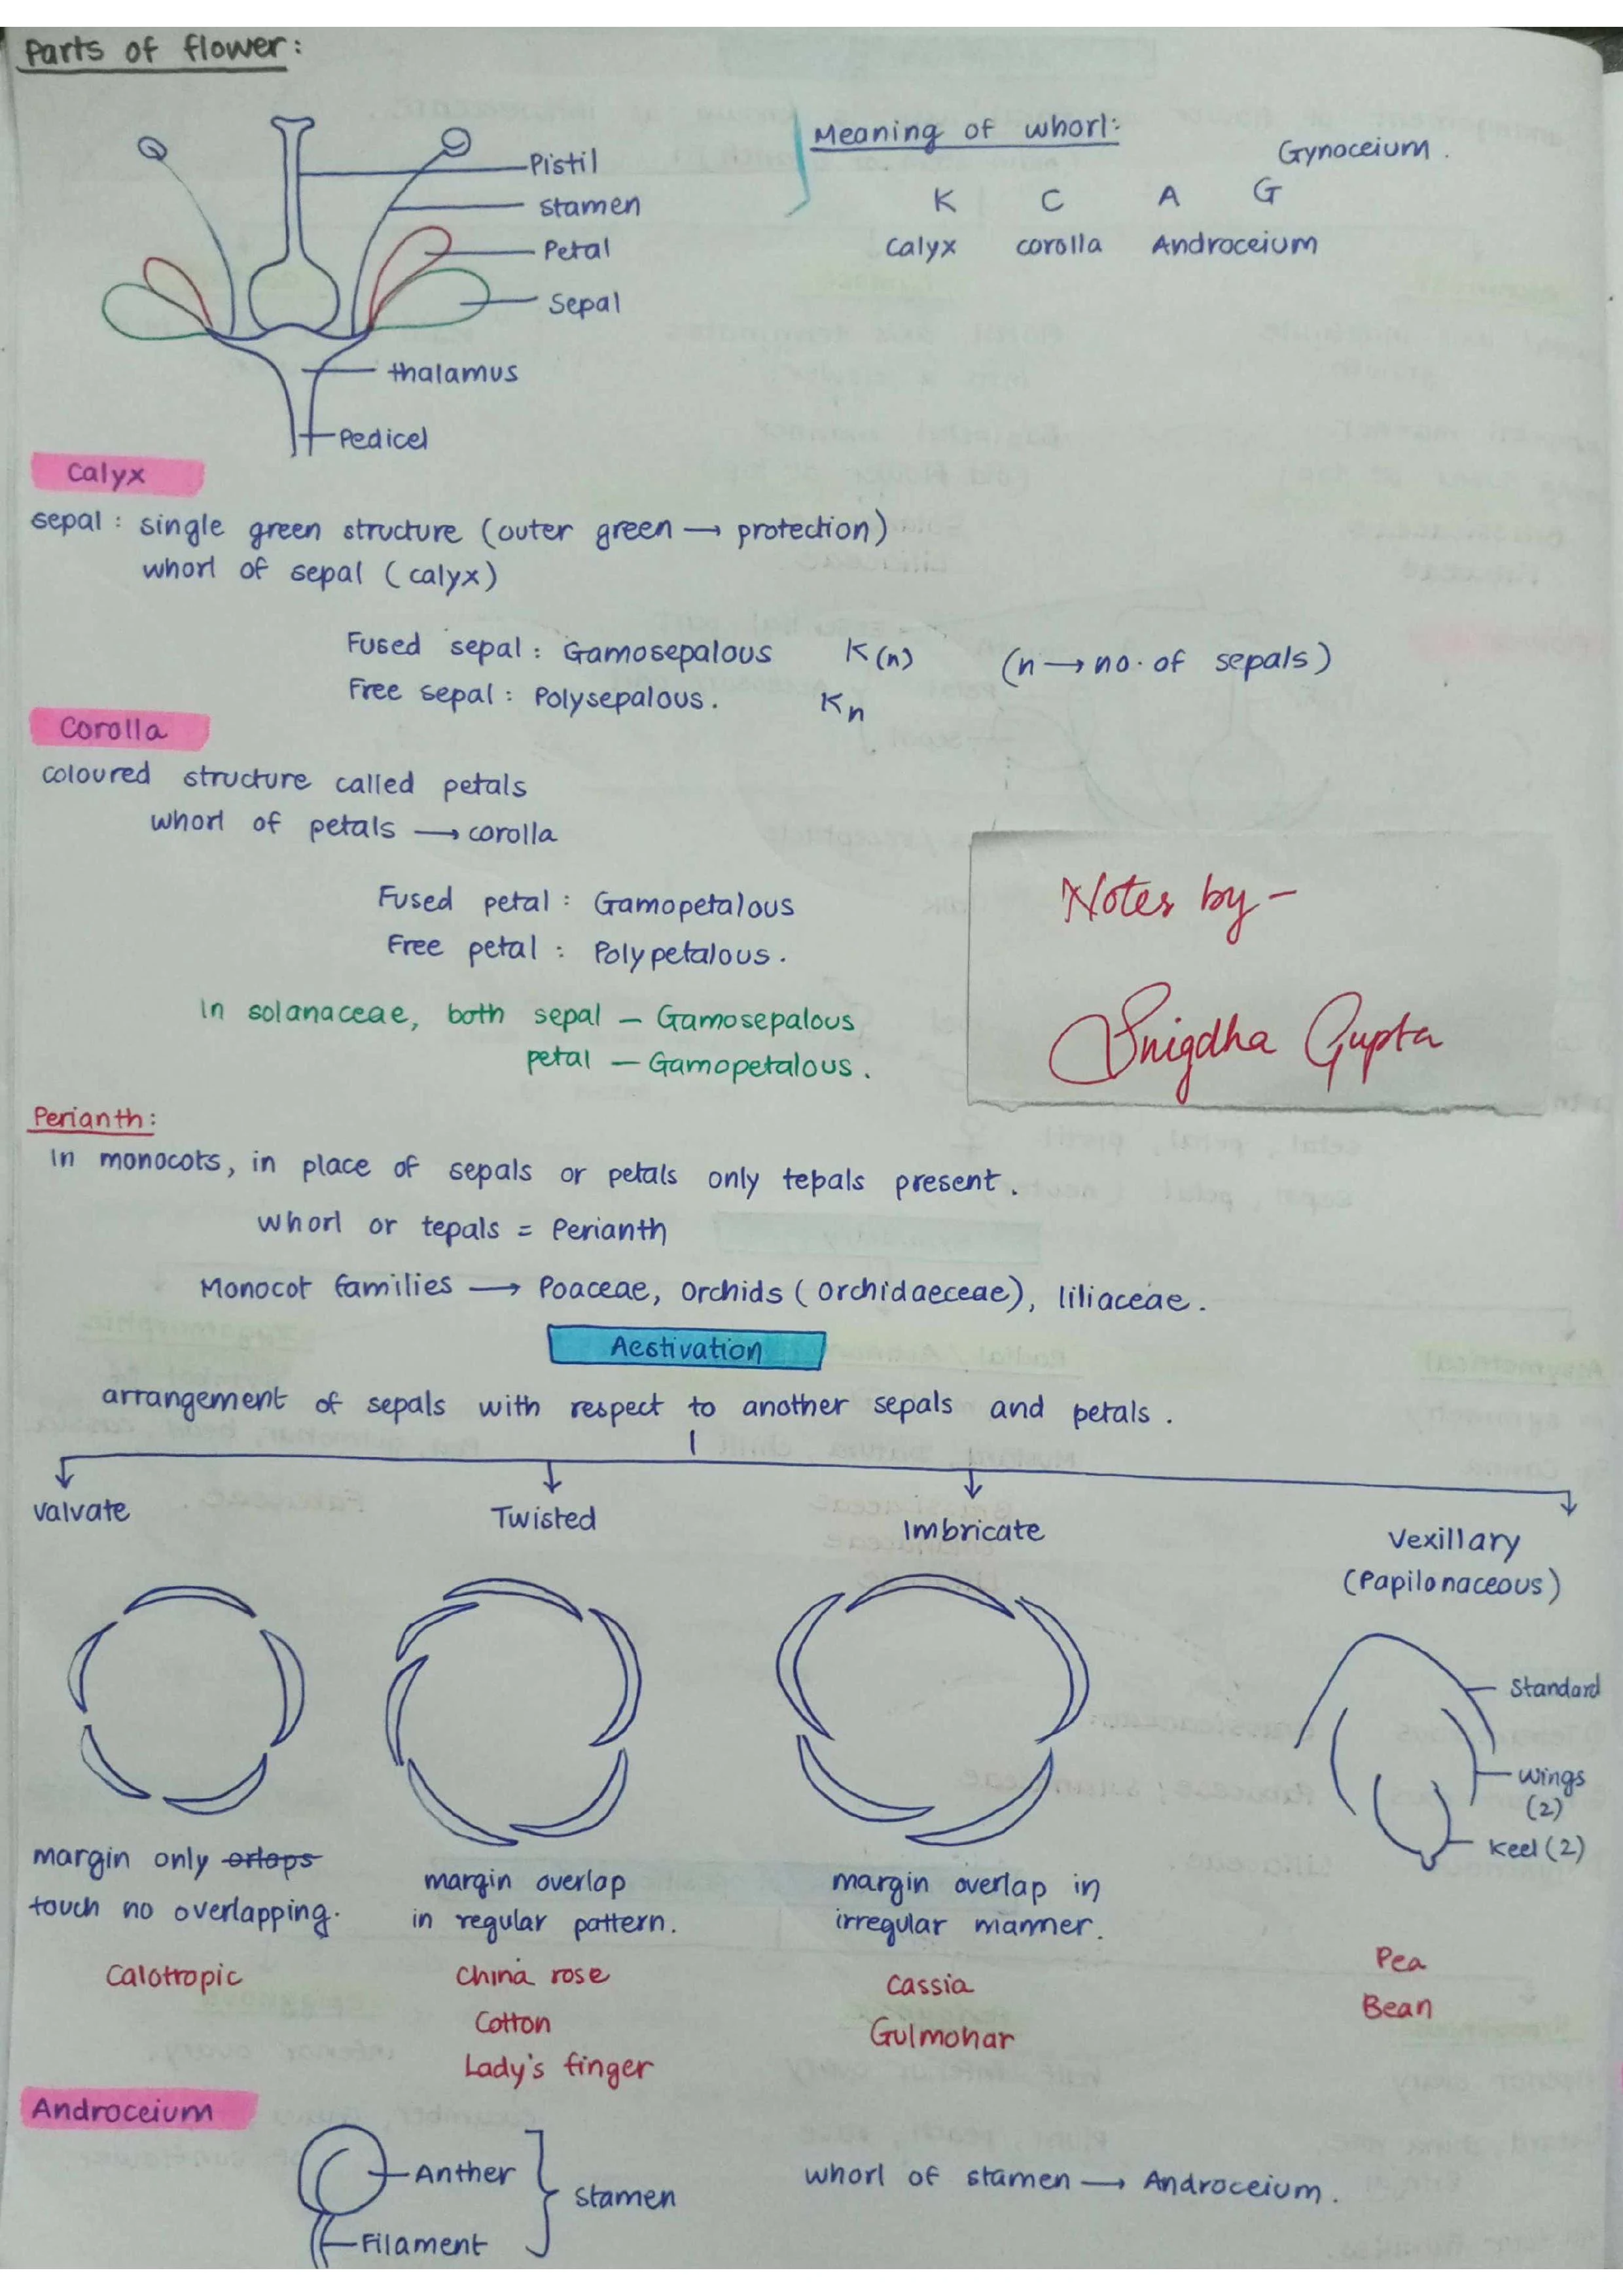 Parts of flower:
Pistil
stamen
Petal
Sepal
thalamus
Pedicel
Meaning of whorl:
Gynoceium.
K C A G
calyx corolla Androceium
Calyx
sepal : single green structure (outer green → protection)
whorl of sepal (calyx)
Fused sepal : Gamosepalous K(n) (n → no. of sepals)
Free sepal : Polysepalous. Kn
Corolla
coloured structure called petals
whorl of petals → corolla
Fused petal : Gamopetalous
Free petal : Polypetalous.
In solanaceae, both sepal – Gamosepalous
petal – Gamopetalous.
Notes by –
Snigdha Gupta
Perianth:
In monocots, in place of sepals or petals only tepals present.
whorl or tepals = Perianth
Monocot families → Poaceae, Orchids (Orchidaeceae), liliaceae.
Aestivation
arrangement of sepals with respect to another sepals and petals.
valvate
Twisted
Imbricate
Vexillary
(Papilonaceous)
Standard
wings
(2)
Keel (2)
margin only orlaps
touch no overlapping.
margin overlap
in regular pattern.
margin overlap in
irregular manner.
Calotropic
China rose
Cotton
Lady's finger
Cassia
Gulmohar
Pea
Bean
Androceium
Anther
Filament
stamen
whorl of stamen → Androceium.